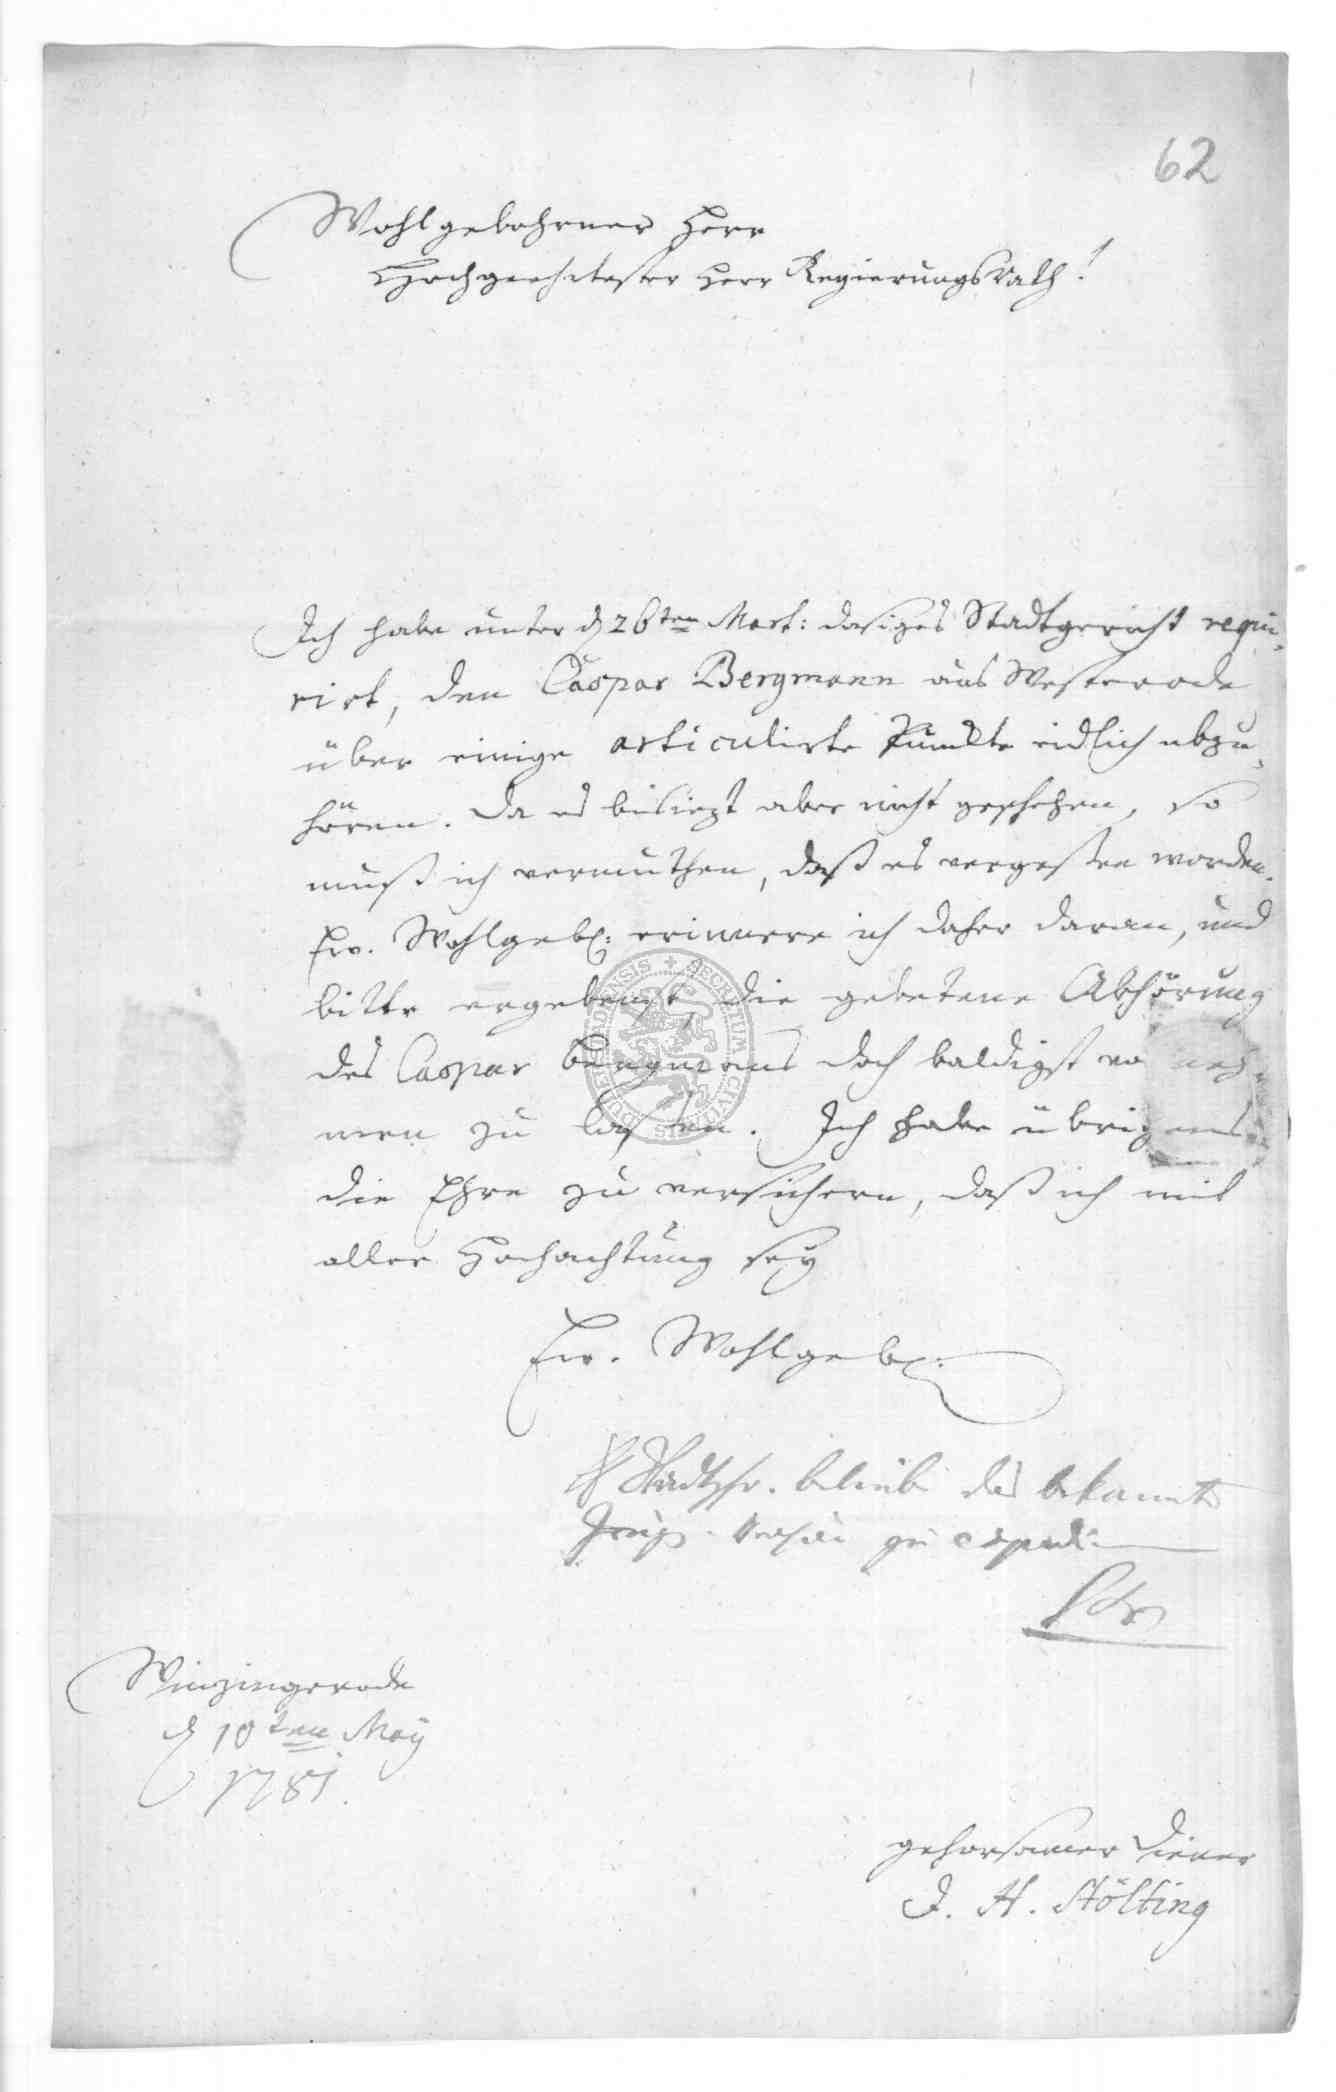 62
Wohlgebohrner Herr
Hochgeehrtester Herr Regierungsrath!
Ich habe unter d 26ten Mart: dasiges Stadtgericht requi-
rirt, den Caspar Bergmann aus Westerode
über einige articulirte Punkte eidlich abzu-
hören. Da es bis iezt aber nicht geschehen, so
muß ich vermuthen, daß es vergeßen worden.
Ew. Wohlgeb: erinnere ich daher daran, und
bitte ergebenst, die gebetene Abhörung
des Caspar Bergmanns doch baldigst vo neh-
men zu laßen. Ich habe übrigens
die Ehre zu versichern, daß ich mit
aller Hochachtung sey
Ew. Wohlgeb:
Stadtschr. beliebe das bekannte
zu exped:
Winzingerode
d 10ten May
1781.
gehorsamer Diener
J. H. Stölting
SECRETUM CIVITATIS DUDERSTADENSIS